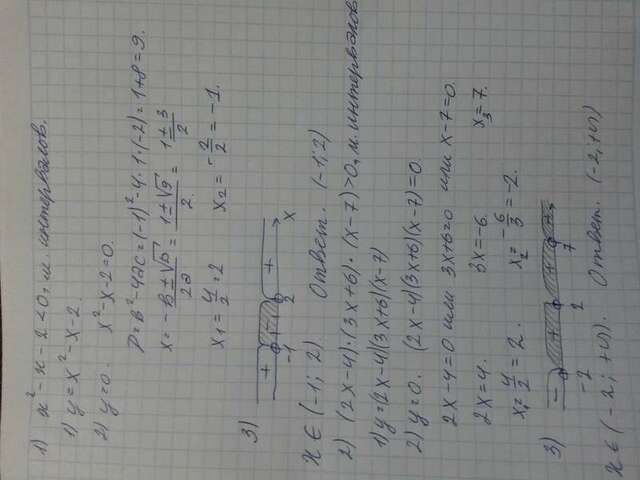 1) x² - x - 2 < 0, м. интервалов.
1) y = x² - x - 2.
2) y = 0. x² - x - 2 = 0.
D = в² - 4ас = (-1)² - 4 · 1 · (-2) = 1 + 8 = 9.
x = (-в ± √D)/2а = (1 ± √9)/2 = (1 ± 3)/2
x₁ = 4/2 = 2 x₂ = -2/2 = -1.
3)
+ - +
-1 2 x
x ∈ (-1; 2). Ответ. (-1; 2)
2) (2x-4)·(3x+6)·(x-7) > 0, м. интервалов
1) y = (2x-4)(3x+6)(x-7)
2) y = 0. (2x-4)(3x+6)(x-7) = 0.
2x-4 = 0 или 3x+6 = 0 или x-7 = 0.
2x = 4. 3x = -6. x₃ = 7.
x₁ = 4/2 = 2. x₂ = -6/3 = -2.
3)
- + + +
-2 2 7
x ∈ (-2; +∞). Ответ. (-2; +∞)